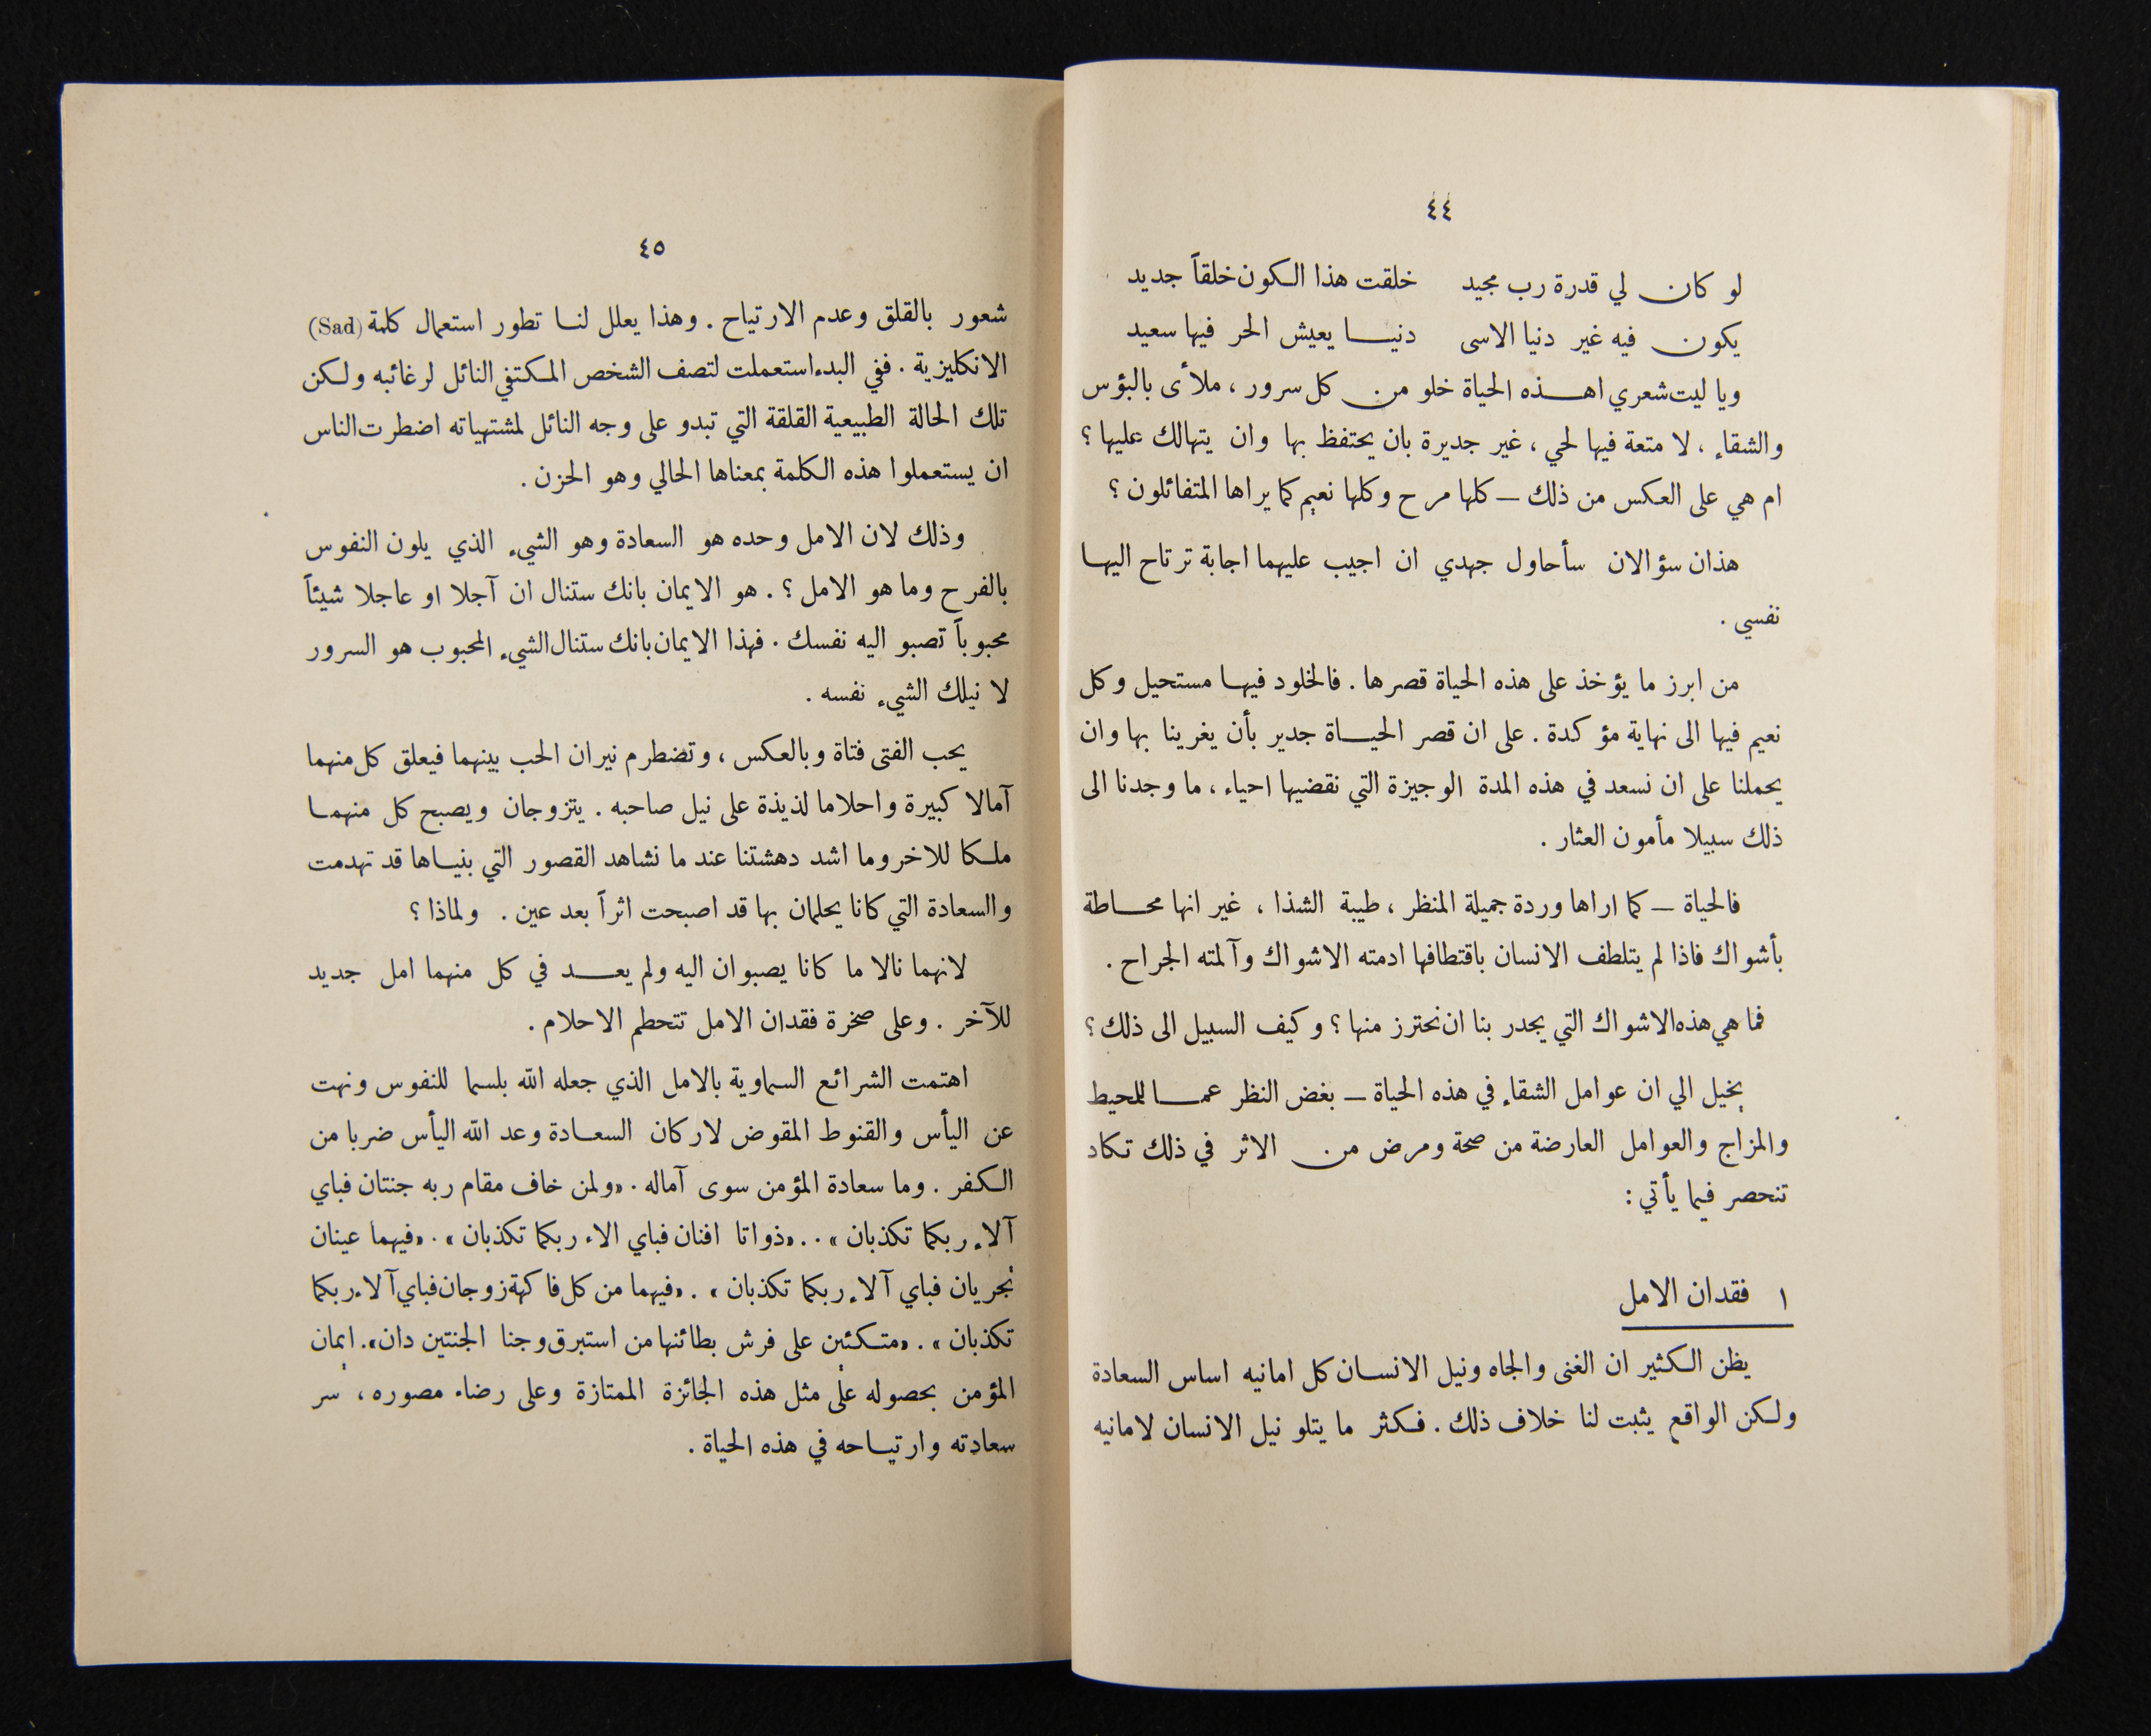 ٤٤
لو كان لي قدرة رب مجيد خلقت هذا الكون خلقاً جديد
يكون فيه غير دنيا الاسى دنيا يعيش الحر فيها سعيد
ويا ليت شعري اهذه الحياة خلو من كل سرور ، ملأى بالبؤس
والشقاء ، لا متعة فيها لحي ، غير جديرة بان يحتفظ بها وان يتهالك عليها ؟
ام هي على العكس من ذلك — كلها مرح وكلها نعيم كما يراها المتفائلون ؟
هذان سؤالان سأحاول جهدي ان اجيب عليهما اجابة ترتاح اليها
نفسي .
من ابرز ما يؤخذ على هذه الحياة قصرها . فالخلود فيها مستحيل وكل
نعيم فيها الى نهاية مؤكدة . على ان قصر الحياة جدير بأن يغرينا بها وان
يحملنا على ان نسعد في هذه المدة الوجيزة التي نقضيها احياء ، ما وجدنا الى
ذلك سبيلا مأمون العثار .
فالحياة — كما اراها وردة جميلة المنظر ، طيبة الشذا ، غير انها محاطة
بأشواك فاذا لم يتلطف الانسان باقتطافها ادمته الاشواك وآلمته الجراح .
فما هي هذه الاشواك التي يجدر بنا ان نحترز منها ؟ وكيف السبيل الى ذلك ؟
يخيل الي ان عوامل الشقاء في هذه الحياة — بغض النظر عما للمحيط
والمزاج والعوامل العارضة من صحة ومرض من الاثر في ذلك تكاد
تنحصر فيما يأتي :
١ فقدان الامل
يظن الكثير ان الغنى والجاه ونيل الانسان كل امانيه اساس السعادة
ولكن الواقع يثبت لنا خلاف ذلك . فكثر ما يتلو نيل الانسان لامانيه
٤٥
شعور بالقلق وعدم الارتياح . وهذا يعلل لنا تطور استعمال كلمة (Sad)
الانكليزية . ففي البدء استعملت لتصف الشخص المكتفي النائل لرغائبه ولكن
تلك الحالة الطبيعية القلقة التي تبدو على وجه النائل لمشتهياته اضطرت الناس
ان يستعملوا هذه الكلمة بمعناها الحالي وهو الحزن .
وذلك لان الامل وحده هو السعادة وهو الشيء الذي يلون النفوس
بالفرح وما هو الامل ؟ . هو الايمان بانك ستنال ان آجلا او عاجلا شيئاً
محبوباً تصبو اليه نفسك . فهذا الايمان بانك ستنال الشيء المحبوب هو السرور
لا نيلك الشيء نفسه .
يحب الفتى فتاة وبالعكس ، وتضطرم نيران الحب بينهما فيعلق كل منهما
آمالا كبيرة واحلاما لذيذة على نيل صاحبه . يتزوجان ويصبح كل منهما
ملكا للاخر وما اشد دهشتنا عند ما نشاهد القصور التي بنياها قد تهدمت
والسعادة التي كانا يحلمان بها قد اصبحت اثراً بعد عين . ولماذا ؟
لانهما نالا ما كانا يصبوان اليه ولم يعد في كل منهما امل جديد
للآخر . وعلى صخرة فقدان الامل تتحطم الاحلام .
اهتمت الشرائع السماوية بالامل الذي جعله الله بلسما للنفوس ونهت
عن اليأس والقنوط المقوض لاركان السعادة وعد الله اليأس ضربا من
الكفر . وما سعادة المؤمن سوى آماله . «ولمن خاف مقام ربه جنتان فباي
آلاء ربكما تكذبان » . . «ذواتا افنان فباي الاء ربكما تكذبان » . «فيهما عينان
تجريان فباي آلاء ربكما تكذبان » . «فيهما من كل فاكهة زوجان فباي آلاء ربكما
تكذبان » . «متكئين على فرش بطائنها من استبرق وجنا الجنتين دان» . ايمان
المؤمن بحصوله على مثل هذه الجائزة الممتازة وعلى رضاء مصوره ، سر
سعادته وارتياحه في هذه الحياة .